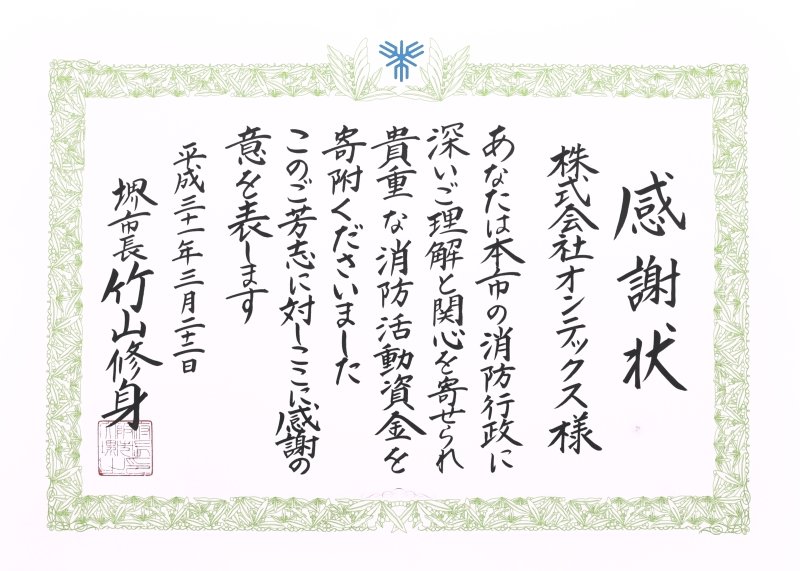 感謝状
株式会社オンテックス様
あなたは本市の消防行政に
深いご理解と関心を寄せられ
貴重な消防活動資金を
寄附くださいました
このご芳志に対しここに感謝の
意を表します
平成三十一年三月二十二日
堺市長 竹山修身